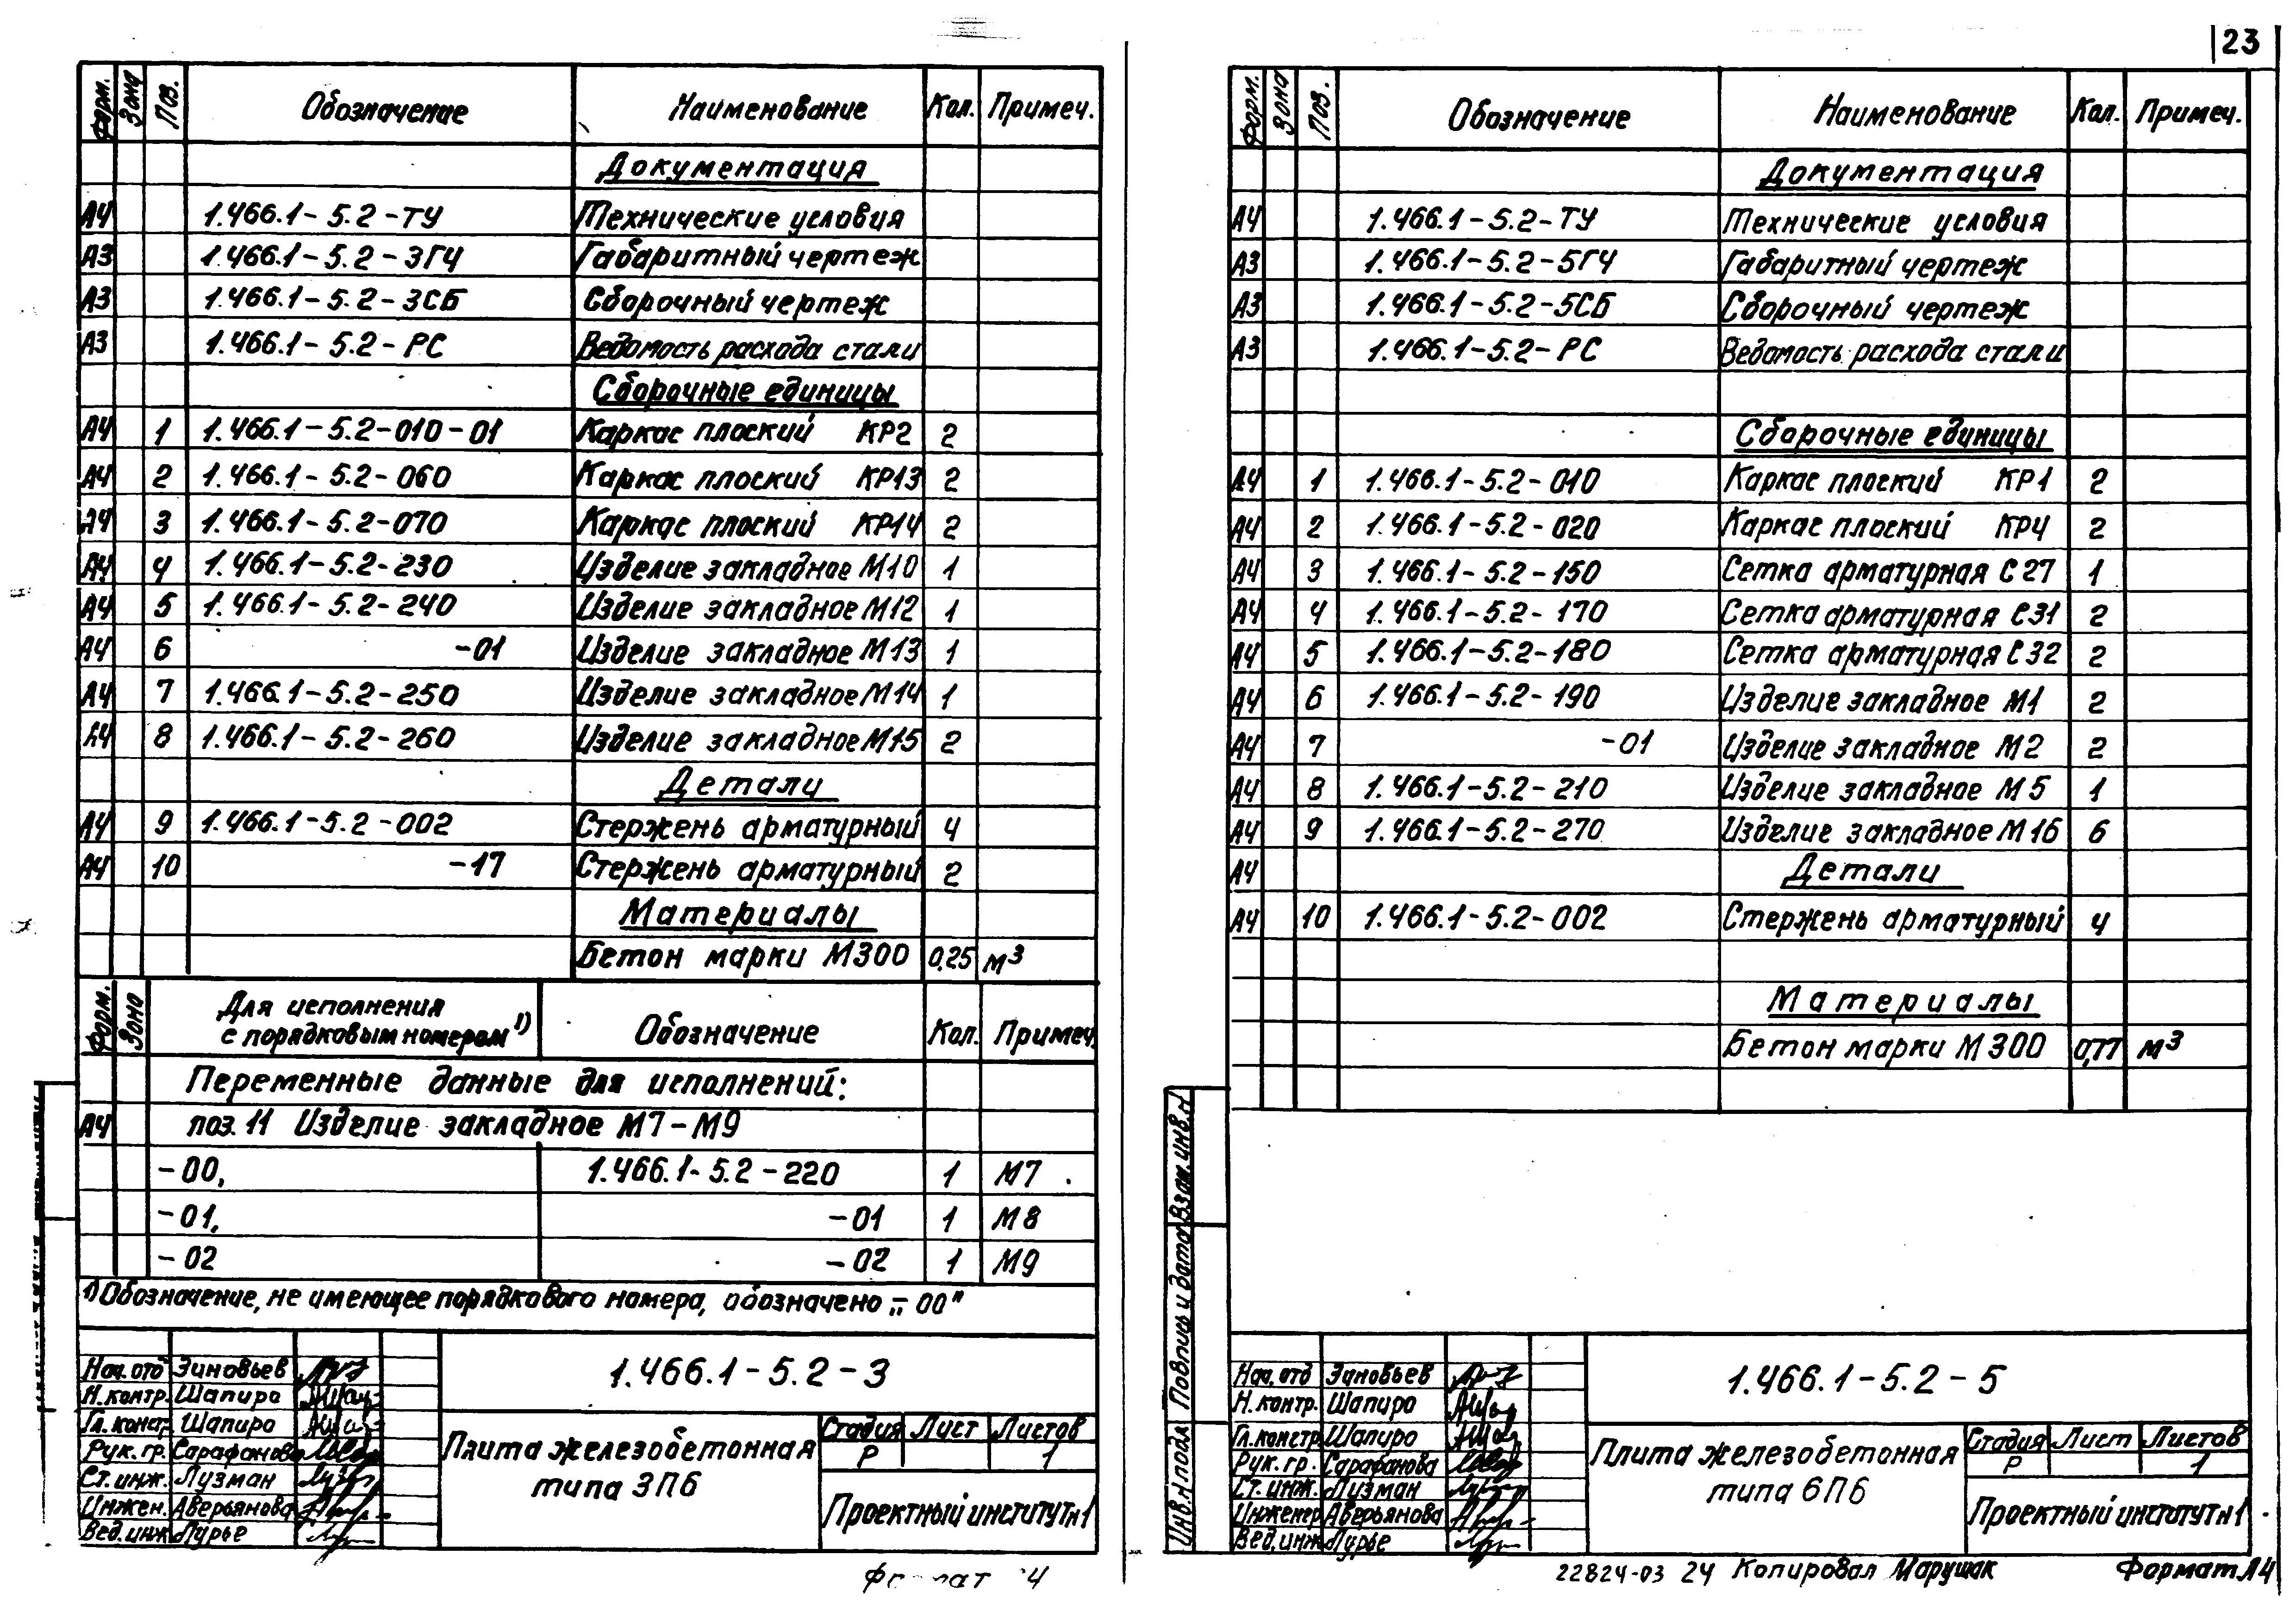 23
Форм. Зона Поз. Обозначение Наименование Кол. Примеч.
Документация
А4 1.466.1-5.2-ТУ Технические условия
А3 1.466.1-5.2-3ГЧ Габаритный чертеж
А3 1.466.1-5.2-3СБ Сборочный чертеж
А3 1.466.1-5.2-РС Ведомость расхода стали
Сборочные единицы
А4 1 1.466.1-5.2-010-01 Каркас плоский КР2 2
А4 2 1.466.1-5.2-060 Каркас плоский КР13 2
А4 3 1.466.1-5.2-070 Каркас плоский КР14 2
А4 4 1.466.1-5.2-230 Изделие закладное М10 1
А4 5 1.466.1-5.2-240 Изделие закладное М12 1
А4 6 -01 Изделие закладное М13 1
А4 7 1.466.1-5.2-250 Изделие закладное М14 1
А4 8 1.466.1-5.2-260 Изделие закладное М15 2
Детали
А4 9 1.466.1-5.2-002 Стержень арматурный 4
А4 10 -17 Стержень арматурный 2
Материалы
Бетон марки М300 0,25 м³
Форм. Зона Для исполнения с порядковым номером¹⁾ Обозначение Кол. Примеч.
Переменные данные для исполнений:
А4 поз. 11 Изделие закладное М7-М9
-00, 1.466.1-5.2-220 1 М7
-01, -01 1 М8
-02 -02 1 М9
¹⁾Обозначение, не имеющее порядкового номера, обозначено „-00"
Нач. отд Зиновьев
Н. контр. Шапиро
Гл. констр. Шапиро
Рук. гр. Сарафанова
Ст. инж. Лузман
Инжен. Аверьянова
Вед. инж Лурье
1.466.1-5.2-3
Плита железобетонная
типа 3П6
Стадия Лист Листов
Р 1
Проектный институт №1
Форм. Зона Поз. Обозначение Наименование Кол. Примеч.
Документация
А4 1.466.1-5.2-ТУ Технические условия
А3 1.466.1-5.2-5ГЧ Габаритный чертеж
А3 1.466.1-5.2-5СБ Сборочный чертеж
А3 1.466.1-5.2-РС Ведомость расхода стали
Сборочные единицы
А4 1 1.466.1-5.2-010 Каркас плоский КР1 2
А4 2 1.466.1-5.2-020 Каркас плоский КР4 2
А4 3 1.466.1-5.2-150 Сетка арматурная С27 1
А4 4 1.466.1-5.2-170 Сетка арматурная С31 2
А4 5 1.466.1-5.2-180 Сетка арматурная С32 2
А4 6 1.466.1-5.2-190 Изделие закладное М1 2
А4 7 -01 Изделие закладное М2 2
А4 8 1.466.1-5.2-210 Изделие закладное М5 1
А4 9 1.466.1-5.2-270 Изделие закладное М16 6
А4 Детали
А4 10 1.466.1-5.2-002 Стержень арматурный 4
Материалы
Бетон марки М300 0,77 м³
Взам. инв. №
Подпись и дата
Инв. № подл
Нач. отд Зиновьев
Н. контр. Шапиро
Гл. констр. Шапиро
Рук. гр. Сарафанова
Ст. инж. Лузман
Инженер Аверьянова
Вед. инж Лурье
1.466.1-5.2-5
Плита железобетонная
типа 6П6
Стадия Лист Листов
Р 1
Проектный институт №1
22824-03 24 Копировал Марущак Формат А4